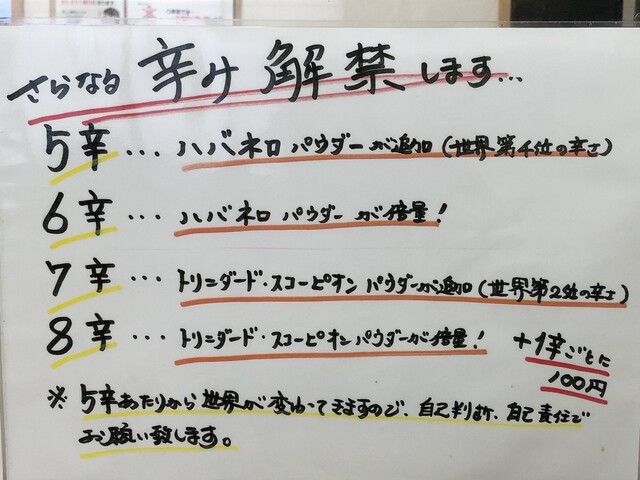 さらなる 辛み 解禁します…
5辛 … ハバネロ パウダーが追加 (世界第4位の辛さ)
6辛 … ハバネロ パウダーが倍量!
7辛 … トリニダード・スコーピオン パウダーが追加 (世界第2位の辛さ)
8辛 … トリニダード・スコーピオンパウダーが倍量!
+1辛ごとに
100円
※ 5辛あたりから世界が変わってきますので、自己判断、自己責任で
お願い致します。